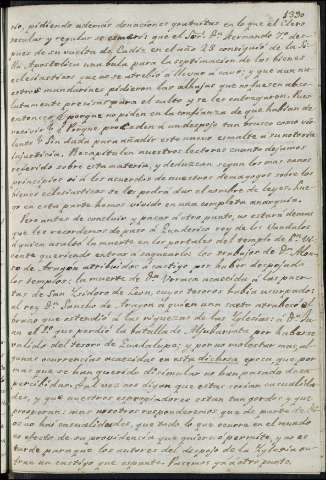 1330
rio, pidiendo ademas donaciones gratuitas en lo que el Clero
secular y regular se esmeró: que el Sor. Dn. Fernando 7º des-
pues de su vuelta de Cadiz en el año 23 consiguió de la Si-
lla Apostolica una bula para la septimacion de los bienes
eclesiasticos que no se atrebió a llevar a cavo: y que aun nu-
estros mandarines pidieran las alhajas que no fuesen abso-
lutamente precisas para el culto y se les entregaron. Mas
entonces porque no piden en la confianza de que habian de
recivirlo? Porque proceden á un despojo tan brusco como vio-
lento? Sin duda para añadir este nuevo esmalte a su notoria
injusticia. Recapitulen nuestros lectores cuanto dejamos
referido sobre esta materia, y deduzcan segun los mas sanos
principios si á los acuerdos de nuestros demagogos sobre los
bienes eclesiasticos se les podrá dar el nombre de leyes. Aun-
que en esta parte hemos vivido en una completa anarquia.
Pero antes de concluir y pasar á otro punto, no estará demas
que les recordemos de paso á Gunderico rey de los Vandalos
á quien asaltó la muerte en los portales del templo de Sn. Vi-
cente queriendo entrar a saquearlos: los trabajos de Dn. Alon-
so de Aragon atribuidos á castigo por haber despojado
los templos: la muerte de Da. Urraca acaecida á las puer-
tas de San Isidoro de Leon, cuyos tesoros habia usurpado:
al rey Dn. Sancho de Aragon á quien una saeta atrabesó el
brazo que estendió á las riquezas de las Iglesias: á Dn. Ju-
an el 1º que perdió la batalla de Aljubarrota por haberse
valido del tesoro de Guadalupe; y por no molestar mas, al-
gunas ocurrencias acaecidas en esta dichosa epoca, que, por
mas que se han querido disimular no han pasado desa-
percibidas. Tal vez nos digan que estas serian casualida-
des, y que nuestros espoliadores estan tan gordos y que
prosperan: mas nosotros responderemos que de parte de Di-
os no hay casualidades, que todo lo que ocurre en el mundo
es efecto de su providencia que quiere ó permite, y no es
tarde para que los autores del despojo de la Iglesia su-
fran un castigo que espante. Pasemos ya á otro punto.